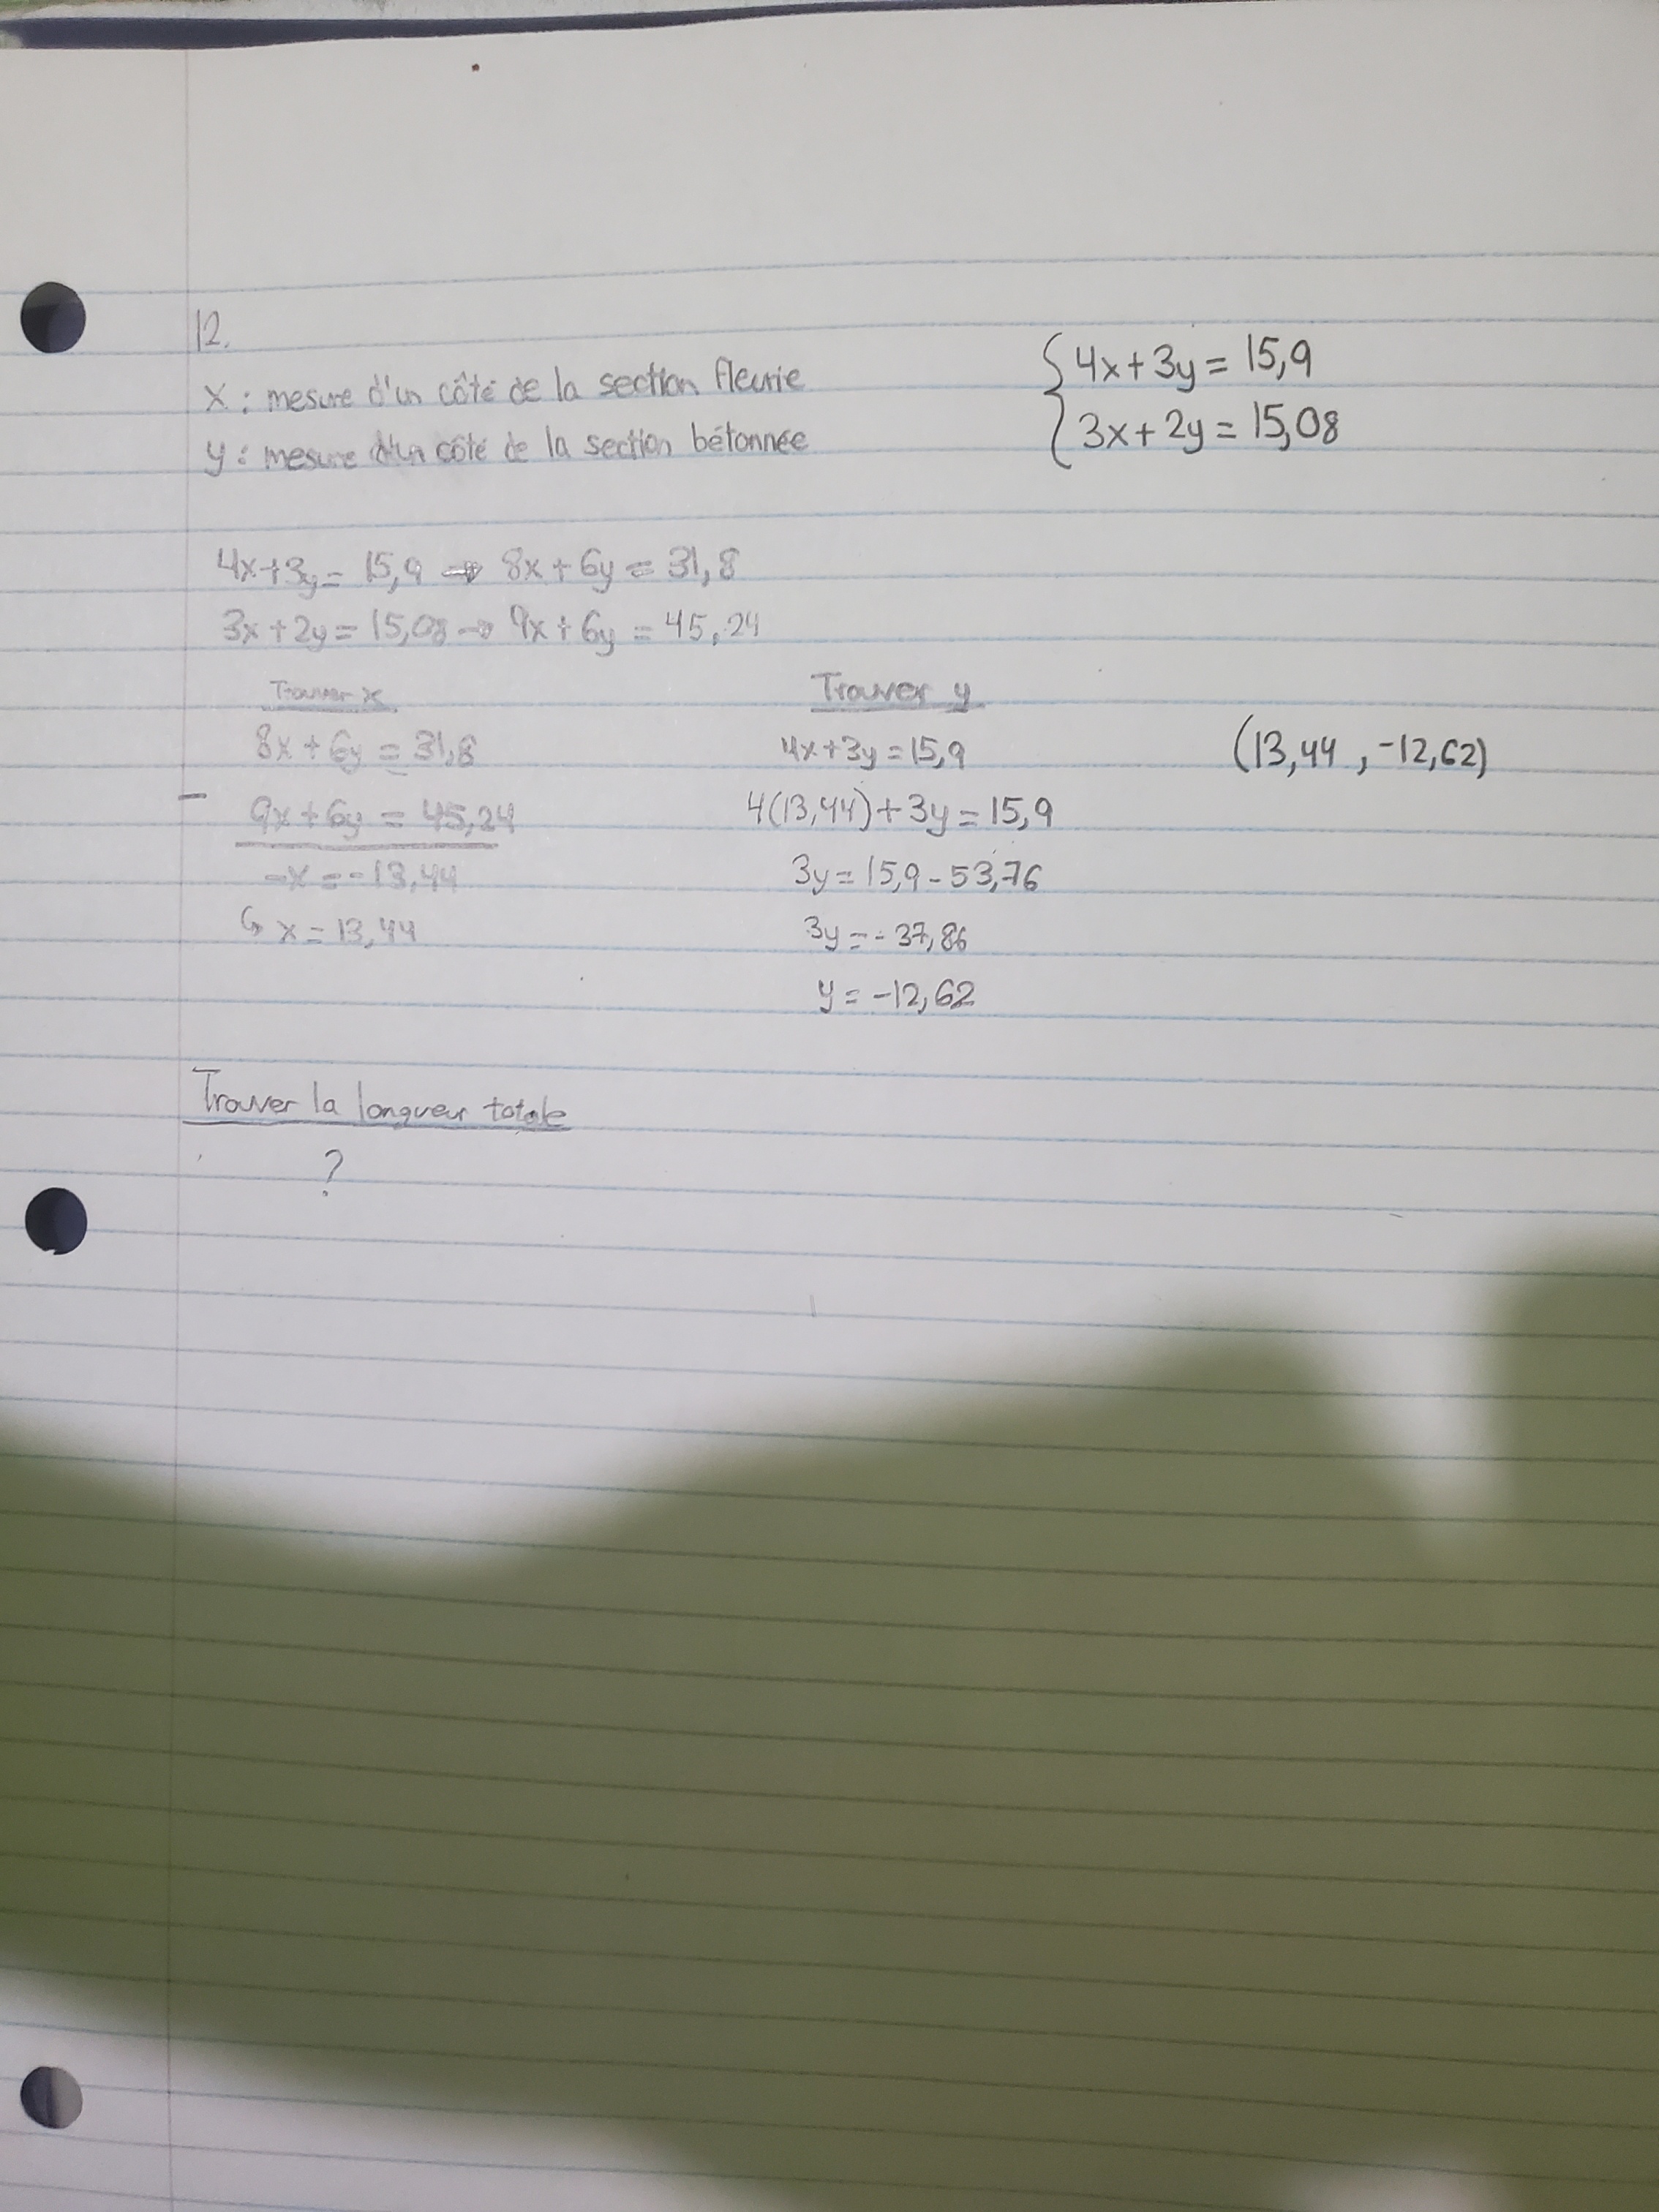 12.
x : mesure d'un côté de la section fleurie
y : mesure d'un côté de la section bétonnée
{ 4x+3y = 15,9
3x+2y = 15,08
4x+3y = 15,9 → 8x+6y = 31,8
3x+2y = 15,08 → 9x+6y = 45,24
Trouver x
8x+6y = 31,8
- 9x+6y = 45,24
-x = -13,44
↳ x = 13,44
Trouver y
4x+3y = 15,9
4(13,44)+3y = 15,9
3y = 15,9 - 53,76
3y = -37,86
y = -12,62
(13,44 , -12,62)
Trouver la longueur totale
?